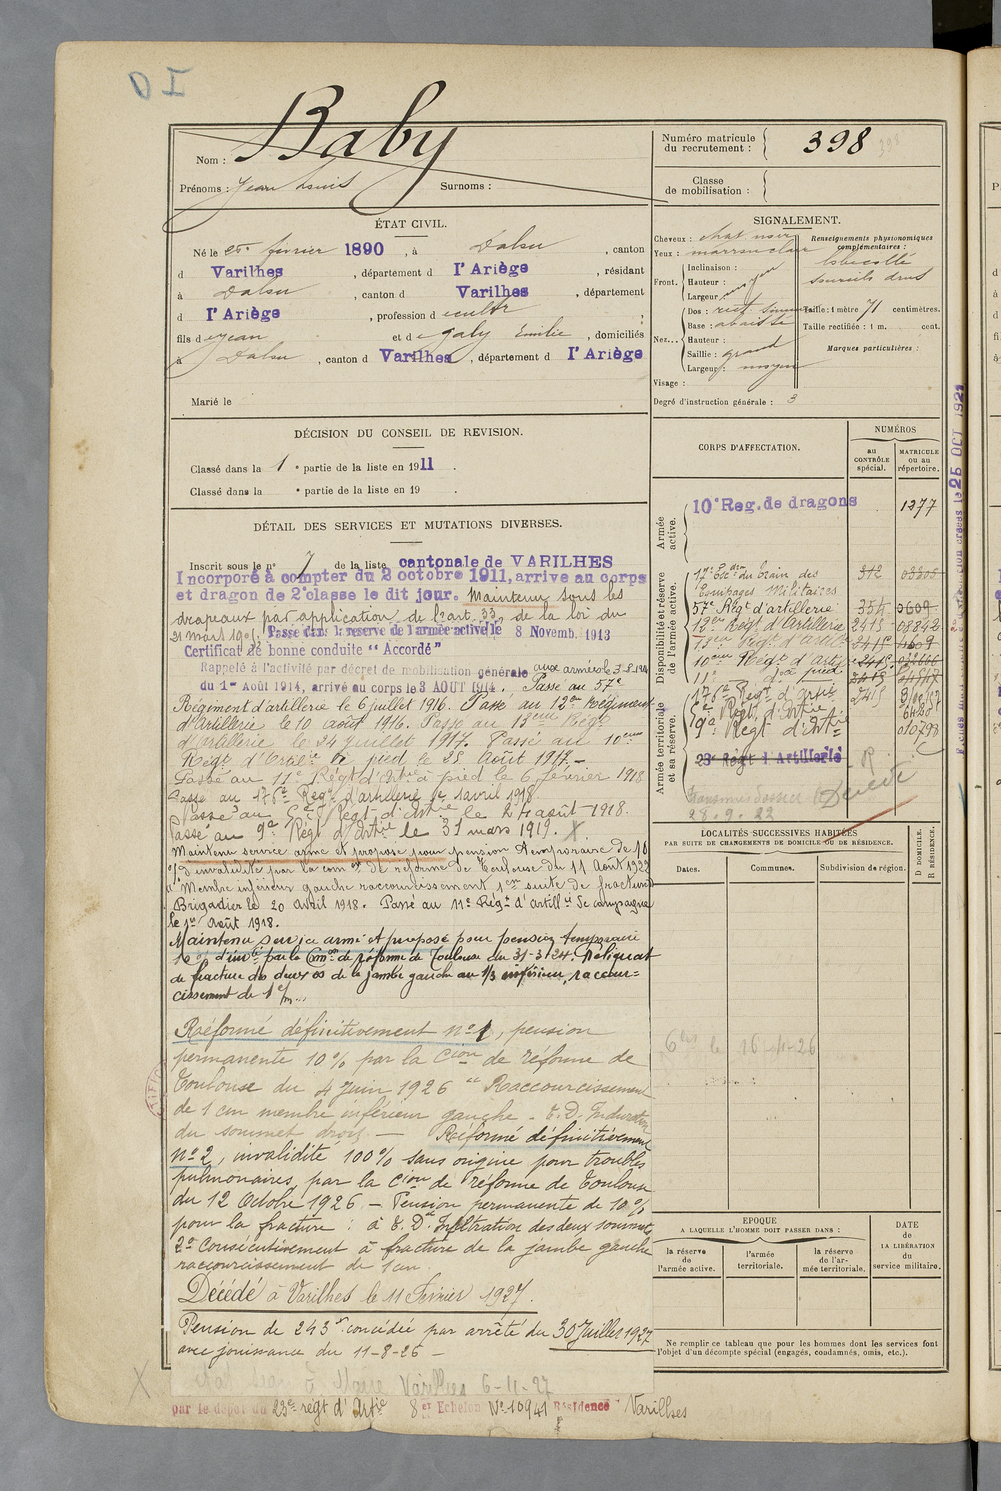 DI
Nom : Baby
Prénoms : Jean Louis Surnoms :
Numéro matricule du recrutement : 398
Classe de mobilisation :
ÉTAT CIVIL.
Né le 25 février 1890, à Dalou, canton
d Varilhes, département d l'Ariège, résidant
à Dalou, canton d Varilhes, département
d l'Ariège, profession d cultr
fils de Jean et de Galy Emilie, domiciliés
à Dalou, canton d Varilhes, département d l'Ariège
Marié le
SIGNALEMENT.
Cheveux : chat. noir
Yeux : marron clair
Front. Inclinaison :
Hauteur : moyen
Largeur :
Nez... Dos : rect.
Base : abaissée
Hauteur :
Saillie : grand
Largeur : moyen
Visage :
Renseignements physionomiques complémentaires :
lobe collé
sourcils drus
Taille : 1 mètre 71 centimètres.
Taille rectifiée : 1 m. cent.
Marques particulières :
Degré d'instruction générale : 3
DÉCISION DU CONSEIL DE REVISION.
Classé dans la 1e partie de la liste en 1911.
Classé dans la e partie de la liste en 19 .
DÉTAIL DES SERVICES ET MUTATIONS DIVERSES.
Inscrit sous le n° 7 de la liste cantonale de VARILHES
Incorporé à compter du 2 octobre 1911, arrive au corps
et dragon de 2e classe le dit jour. Maintenu sous les
drapeaux par application de l'art. 33, de la loi du
21 mars 1905. Passé dans la réserve de l'armée active le 8 Novemb. 1913
Certificat de bonne conduite "Accordé"
Rappelé à l'activité par décret de mobilisation générale aux armées le 3.8.1914
du 1er Août 1914, arrivé au corps le 3 AOUT 1914. Passé au 57e
Régiment d'artillerie le 6 juillet 1916. Passé au 12e Régiment
d'Artillerie le 10 août 1916. Passé au 13eme Régt
d'Artillerie le 24 juillet 1917. Passé au 10eme
Régt d'Artie à pied le 25 Août 1917.—
Passé au 11e Régt d'Artie à pied le 6 février 1918
Passé au 176e Régt d'artillerie le 1 avril 1918
Passé au 6e Régt d'Artie le 24 août 1918.
Passé au 9e Régt d'Artie le 31 mars 1919. X
Maintenu service armé et proposé pour pension temporaire de 10
% d'invalidité par la comon de réforme de Toulouse du 11 Août 1922
Membre inférieur gauche raccourcissement 1cm suite de fracture
Brigadier le 20 avril 1918. Passé au 11e Régt d'artillie de campagne
le 1er août 1918.
Maintenu service armé et proposé pour pension temporaire
10% d'inv.té par la Comon de réforme de Toulouse du 31-3-24. Reliquat
de fracture des deux os de la jambe gauche au 1/3 inférieur, raccour=
cissement de 1 c/m...
Réformé définitivement n°1, pension
permanente 10% par la Cion de réforme de
Toulouse du 4 Juin 1926 "Raccourcissement
de 1 cm membre inférieur gauche. E.D. Induration
du sommet droit. — Réformé définitivement
n°2, invalidité 100% sans origine pour troubles
pulmonaires, par la Cion de réforme de Toulouse
du 12 Octobre 1926. — Pension permanente de 10%
pour la fracture : à E.D. Infiltration des deux sommets
2° Consécutivement à fracture de la jambe gauche
raccourcissement de 1 cm.
Décédé à Varilhes le 11 février 1927.
Pension de 243 f. concédée par arrêté du 30 Juillet 1927
avec jouissance du 11-8-26 —
Varilhes 6-11-27
par le dépôt du 23e régt d'Artie 8e Echelon N° 10941 Résidence Varilhes
CORPS D'AFFECTATION.
NUMÉROS
au CONTRÔLE spécial.
MATRICULE ou au répertoire.
Armée active.
10e Reg. de dragons 1377
Disponibilité et réserve de l'armée active.
17e Escdon du Train des 312 03305
Equipages Militaires
57e Régt d'artillerie 354 0609
12eme Régt d'Artillerie 2415 08842
13eme Régt d'Artille 2415 4609
10eme Régt d'Artie 2415
11e d° à pied 2415
176e Régt d'artie 2415
Armée territoriale et sa réserve.
6e Régt d'Artie
9e Régt d'Artie 010798
23e Régt d'Artillerie R
28.9.22
Décédé
LOCALITÉS SUCCESSIVES HABITÉES
PAR SUITE DE CHANGEMENTS DE DOMICILE OU DE RÉSIDENCE.
Dates. Communes. Subdivision de région. D DOMICILE. R RÉSIDENCE.
le 16-11-26
EPOQUE
A LAQUELLE L'HOMME DOIT PASSER DANS :
la réserve de l'armée active.
l'armée territoriale.
la réserve de l'armée territoriale.
DATE de LA LIBÉRATION du service militaire.
Ne remplir ce tableau que pour les hommes dont les services font
l'objet d'un décompte spécial (engagés, condamnés, omis, etc.).
25 OCT 1921